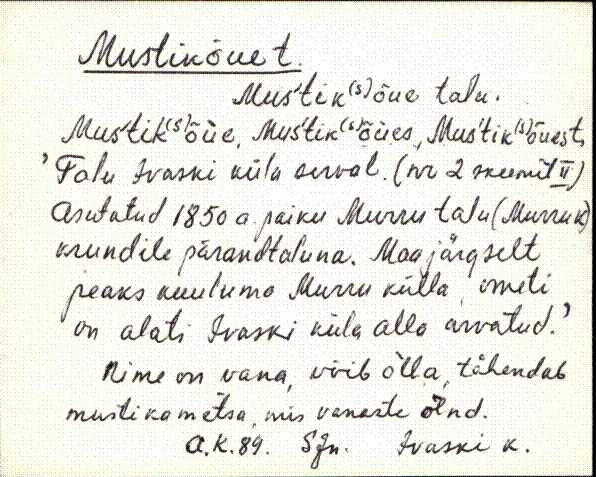 Mustikõue t.
Mus'tik(s)õue talu.
Mus'tik(s)õue, Mus'tik(s)õues, Mus'tik(s)õuest,
'Talu Ivaski küla serval. (nr 2 skeemil II)
Asutatud 1850 a. paiku Murru talu (Murru k)
krundile pärandtaluna. Maajärgselt
peaks kuuluma Murru külla, ometi
on alati Ivaski küla alla arvatud.'
Nime on vana, võib õlla, tähendab
mustika mẽtsa, mis vanaste õlnd.
A.K.89. SJn. Ivaski k.